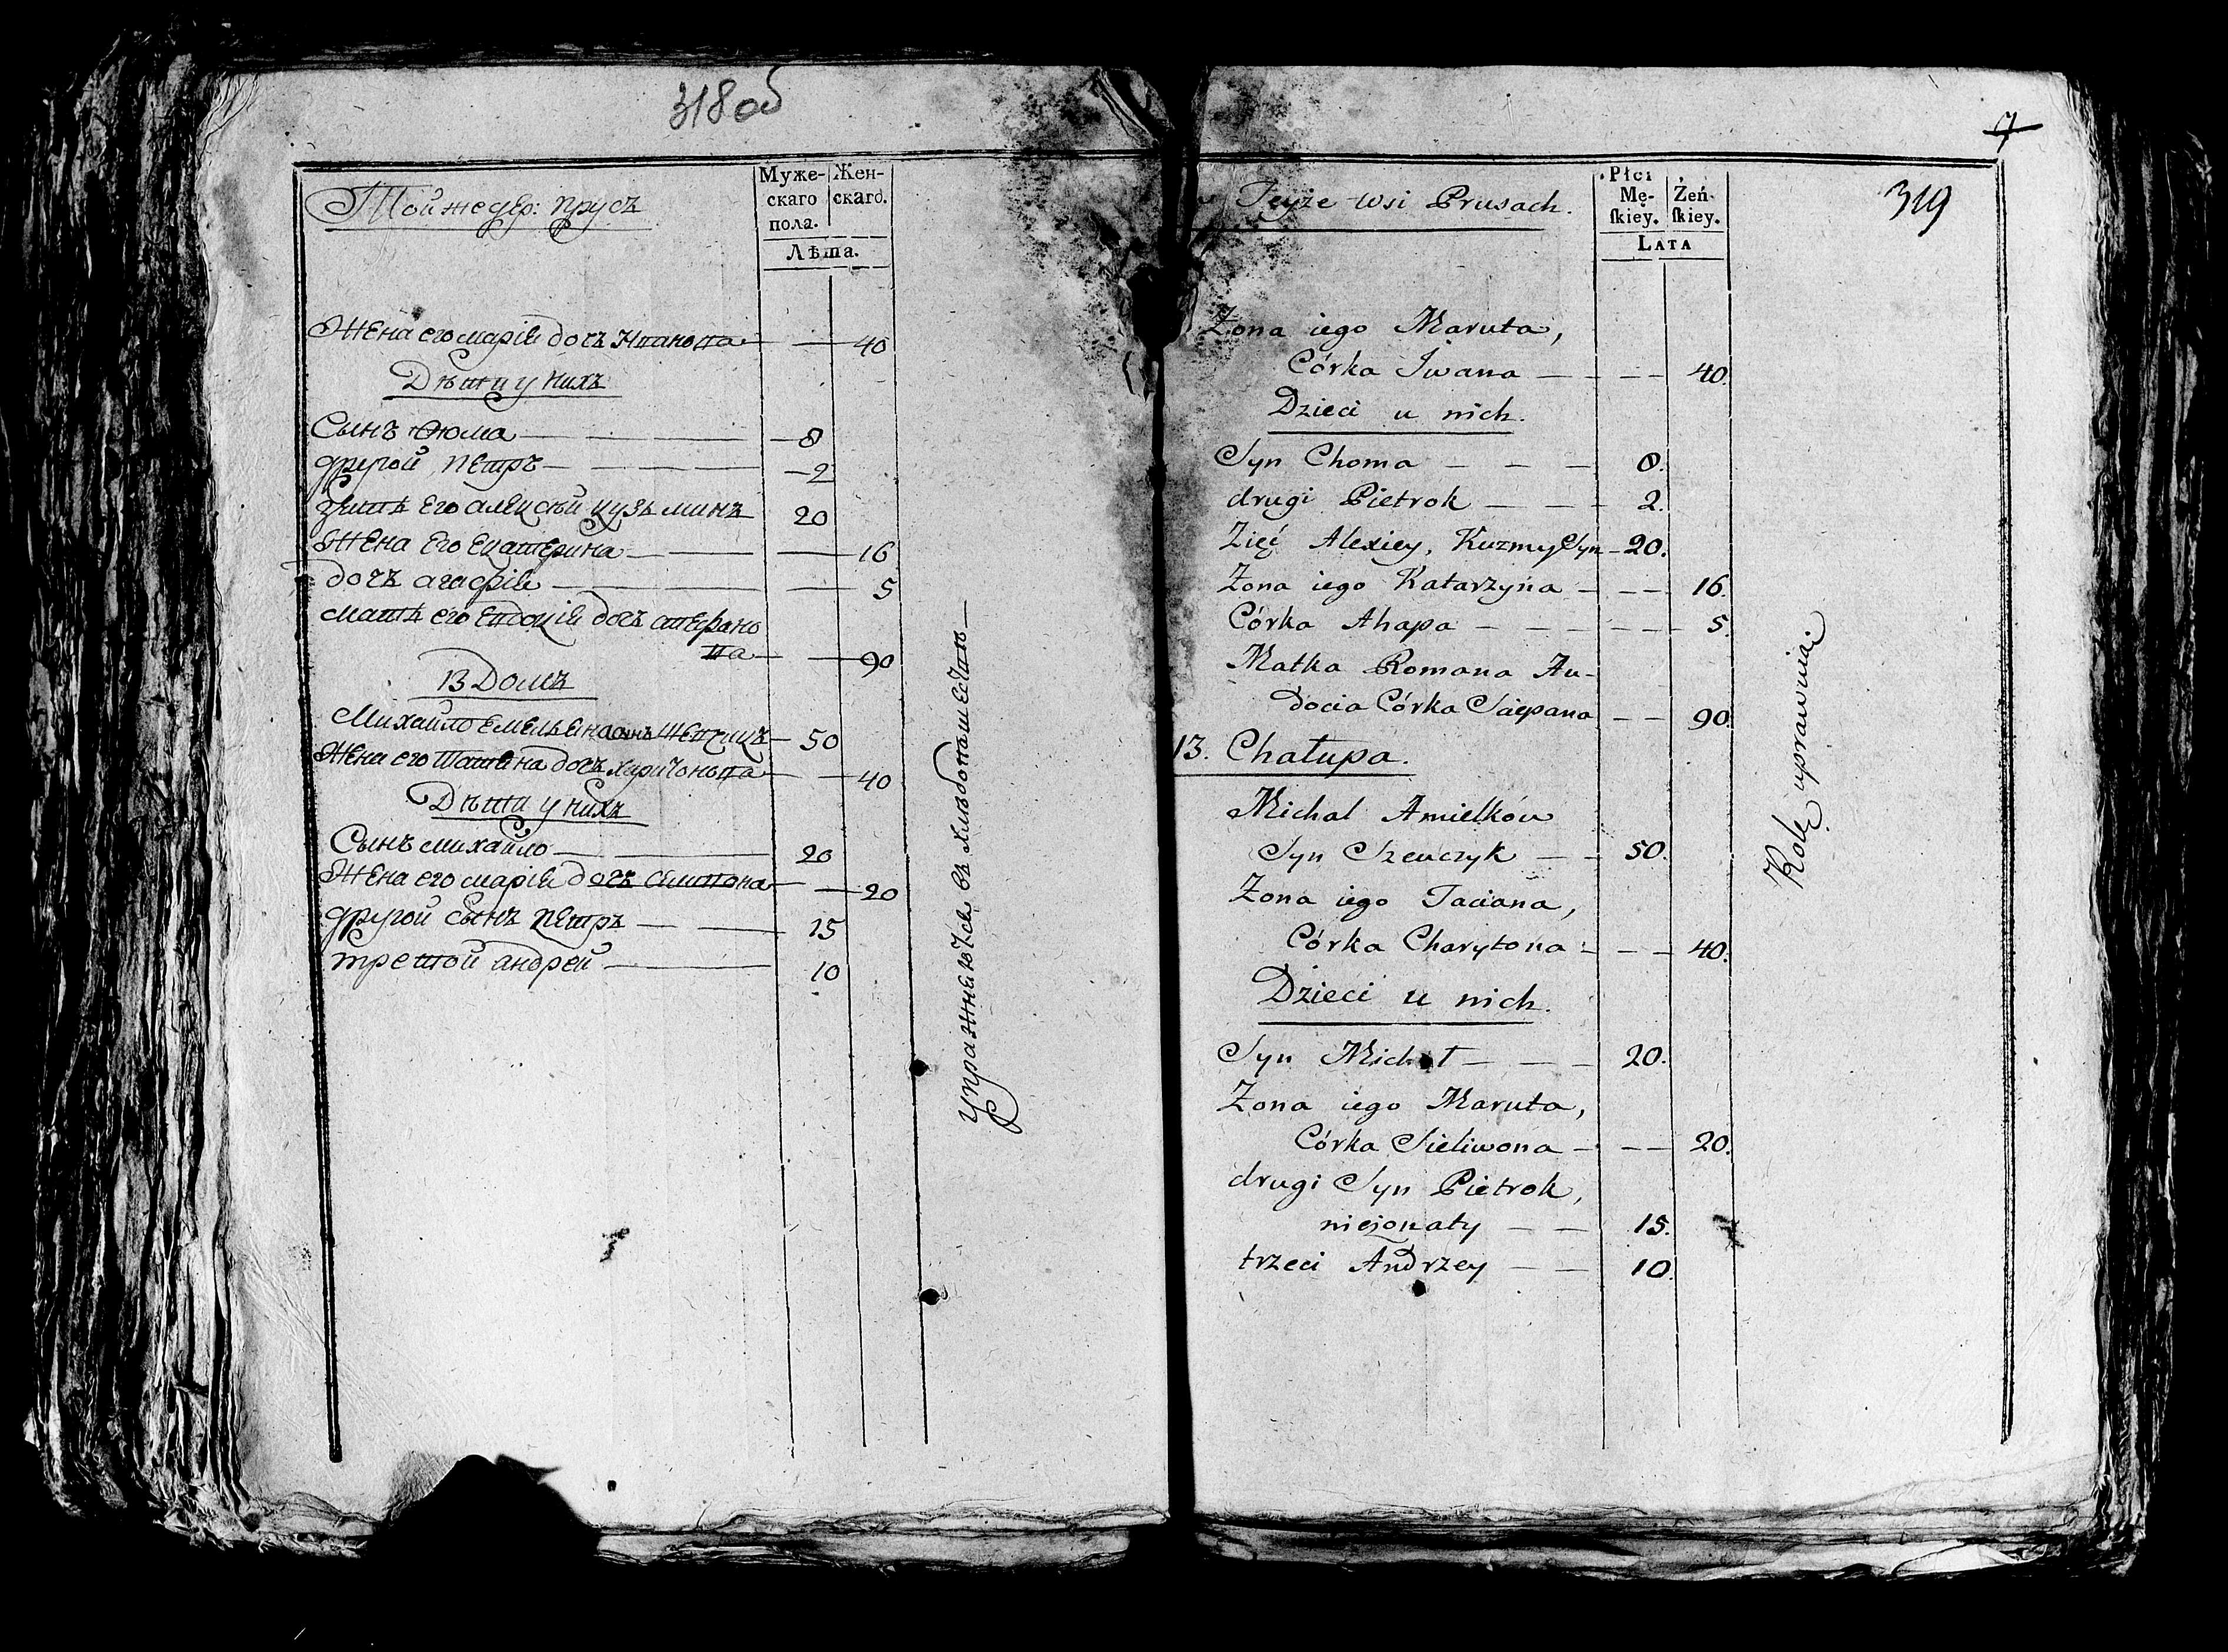 318 об
Тойже дер: Прусъ
Муже-
скаго
пола.
Жен-
скаго.
Лѣта.
Жена его марія дочъ Иванова — — 40
Дѣти у нихъ
Сынъ Фома — — — — 8
другой Петръ — — — — 2
зять его алексѣй кузьминъ 20
Жена Его Екатерина — — — 16
дочъ агафія — — — 5
мать его Евдокія дочъ степано
ва — — 90
13 Домъ
Михайло Емельяна сынъ Шевчикъ — 50
Жена его Татіяна дочъ харитонова — — 40
Дѣти у нихъ
Сынъ михайло — — 20
Жена его марія дочъ селивона — — 20
другой сынъ Петръ — — 15
третой андрей — 10
Упражняются въ хлѣбопашествѣ —
7
319
Teyże wsi Prusach.
Płci
Mę-
ſkiey.
Żeń-
ſkiey.
Lata
Żona iego Maruta,
Córka Jwana — — — 40.
Dzieci u nich.
Syn Choma — — — 8.
drugi Pietrok — — — 2.
Zięć Alexiey, Kuzmy Syn — 20.
Żona iego Katarzyna — — — 16.
Córka Ahapa — — — — — 5.
Matka Romana Au-
docia Córka Sciepana — — 90.
13. Chałupa.
Michal Amielków
Syn Szewczyk — — 50.
Żona iego Taciana,
Córka Charytona — — — 40.
Dzieci u nich.
Syn Michał — — — 20.
Żona iego Maruta,
Córka Sieliwona — — — 20.
drugi Syn Pietrok,
nieżonaty — — 15.
trzeci Andrzey — — 10.
Rolę uprawuią